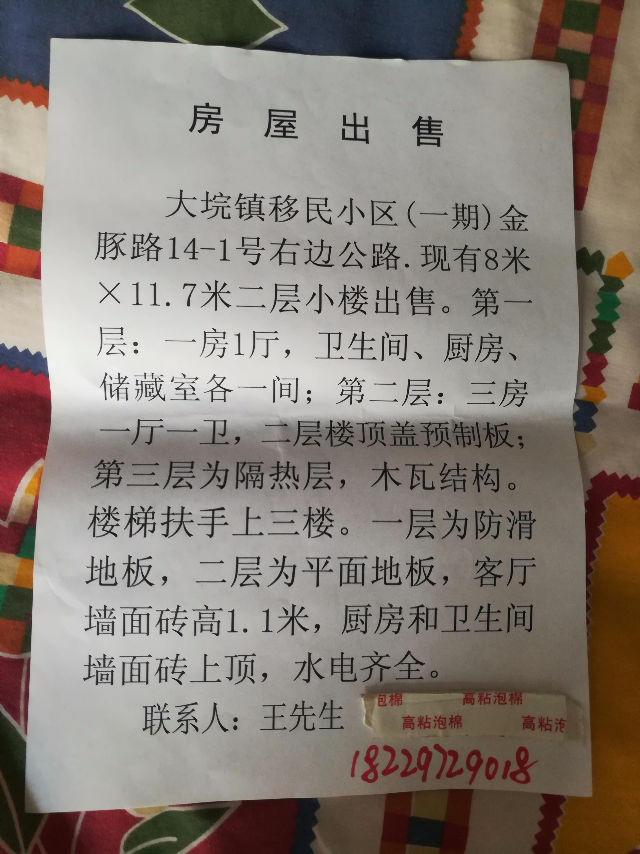 房屋出售
大垸镇移民小区(一期)金
豚路14-1号右边公路.现有8米
×11.7米二层小楼出售。第一
层：一房1厅，卫生间、厨房、
储藏室各一间；第二层：三房
一厅一卫，二层楼顶盖预制板；
第三层为隔热层，木瓦结构。
楼梯扶手上三楼。一层为防滑
地板，二层为平面地板，客厅
墙面砖高1.1米，厨房和卫生间
墙面砖上顶，水电齐全。
联系人：王先生
泡棉 高粘泡棉
高粘泡棉 高粘泡
18229729018